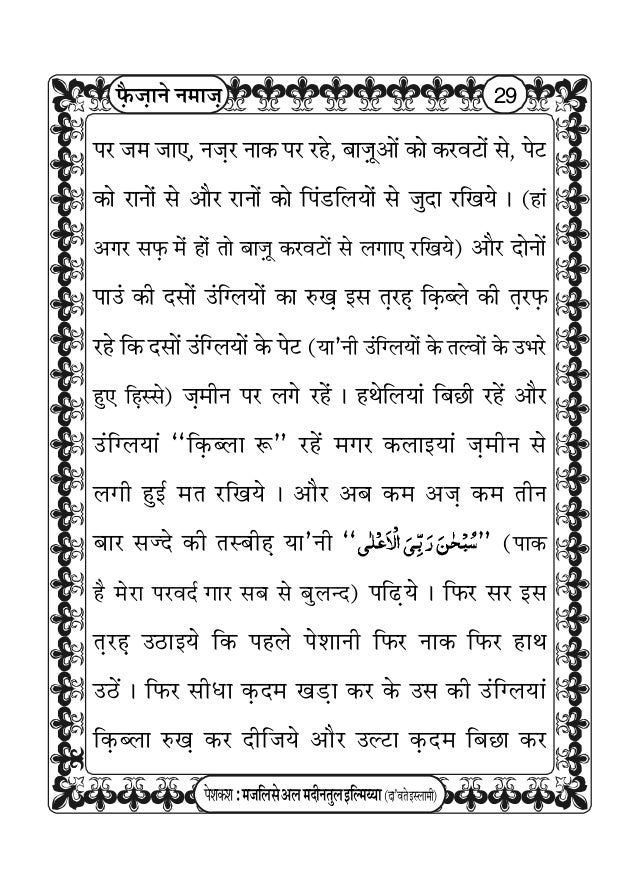 फ़ैज़ाने नमाज़
29
पर जम जाए, नज़र नाक पर रहे, बाज़ूओं को करवटों से, पेट
को रानों से और रानों को पिंडलियों से जुदा रखिये । (हां
अगर सफ़ में हों तो बाज़ू करवटों से लगाए रखिये) और दोनों
पाउं की दसों उंग्लियों का रुख़ इस त़रह़ क़िब्ले की त़रफ़
रहे कि दसों उंग्लियों के पेट (या'नी उंग्लियों के तल्वों के उभरे
हुए ह़िस्से) ज़मीन पर लगे रहें । हथेलियां बिछी रहें और
उंग्लियां ‘‘क़िब्ला रू’’ रहें मगर कलाइयां ज़मीन से
लगी हुई मत रखिये । और अब कम अज़ कम तीन
बार सज्दे की तस्बीह़ या'नी ‘‘سُبْحٰنَ رَبِّیَ الْاَعْلٰی’’ (पाक
है मेरा परवर्द गार सब से बुलन्द) पढ़िये । फिर सर इस
त़रह़ उठाइये कि पहले पेशानी फिर नाक फिर हाथ
उठें । फिर सीधा क़दम खड़ा कर के उस की उंग्लियां
क़िब्ला रुख़ कर दीजिये और उल्टा क़दम बिछा कर
पेशकश : मजलिसे अल मदीनतुल इल्मिय्या (दा'वते इस्लामी)